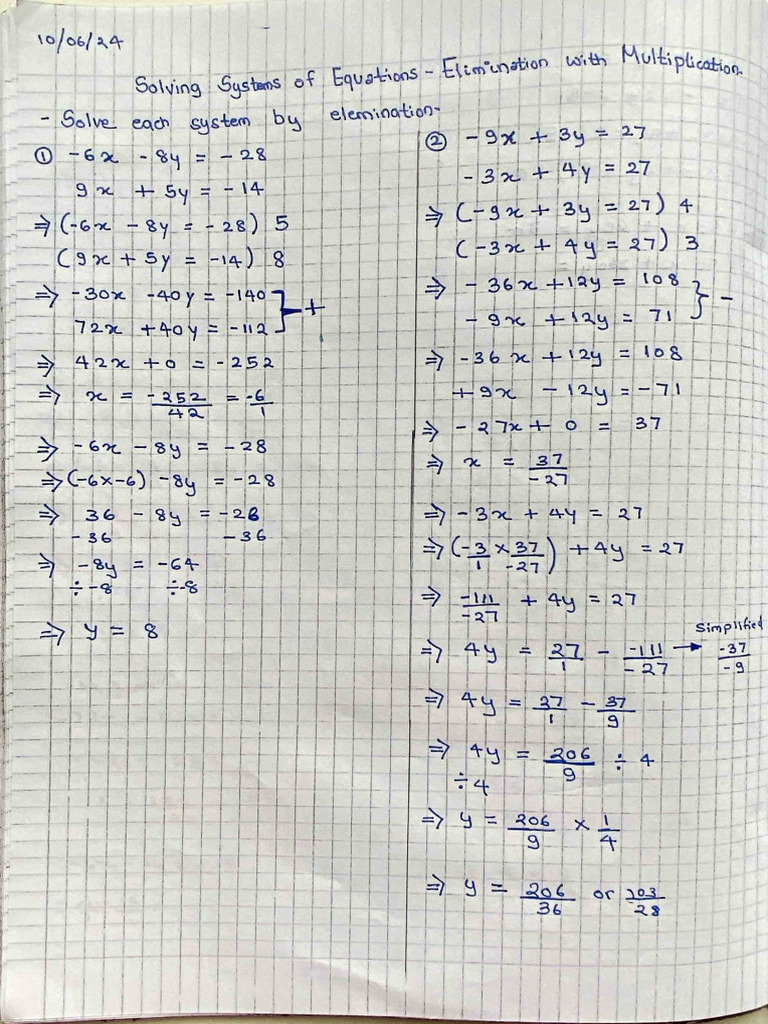 10/06/24
Solving Systems of Equations - Elimination with Multiplication.
- Solve each system by elemination-
① -6x - 8y = -28
9x + 5y = -14
⇒ (-6x - 8y = -28) 5
(9x + 5y = -14) 8
⇒ -30x -40y = -140 } +
72x +40y = -112
⇒ 42x + 0 = -252
⇒ x = -252/42 = -6/1
⇒ -6x - 8y = -28
⇒ (-6x-6) -8y = -28
⇒ 36 - 8y = -28
-36 -36
⇒ -8y = -64
÷-8 ÷-8
⇒ y = 8
② -9x + 3y = 27
-3x + 4y = 27
⇒ (-9x + 3y = 27) 4
(-3x + 4y = 27) 3
⇒ -36x +12y = 108 } -
-9x +12y = 71
⇒ -36x +12y = 108
+9x -12y = -71
⇒ -27x + 0 = 37
⇒ x = 37/-27
⇒ -3x + 4y = 27
⇒ (-3/1 x 37/-27) + 4y = 27
⇒ -111/-27 + 4y = 27
⇒ 4y = 27/1 - -111/-27 → Simplified -37/-9
⇒ 4y = 27/1 - 37/9
⇒ 4y = 206/9 ÷ 4
÷4
⇒ y = 206/9 x 1/4
⇒ y = 206/36 or 103/28